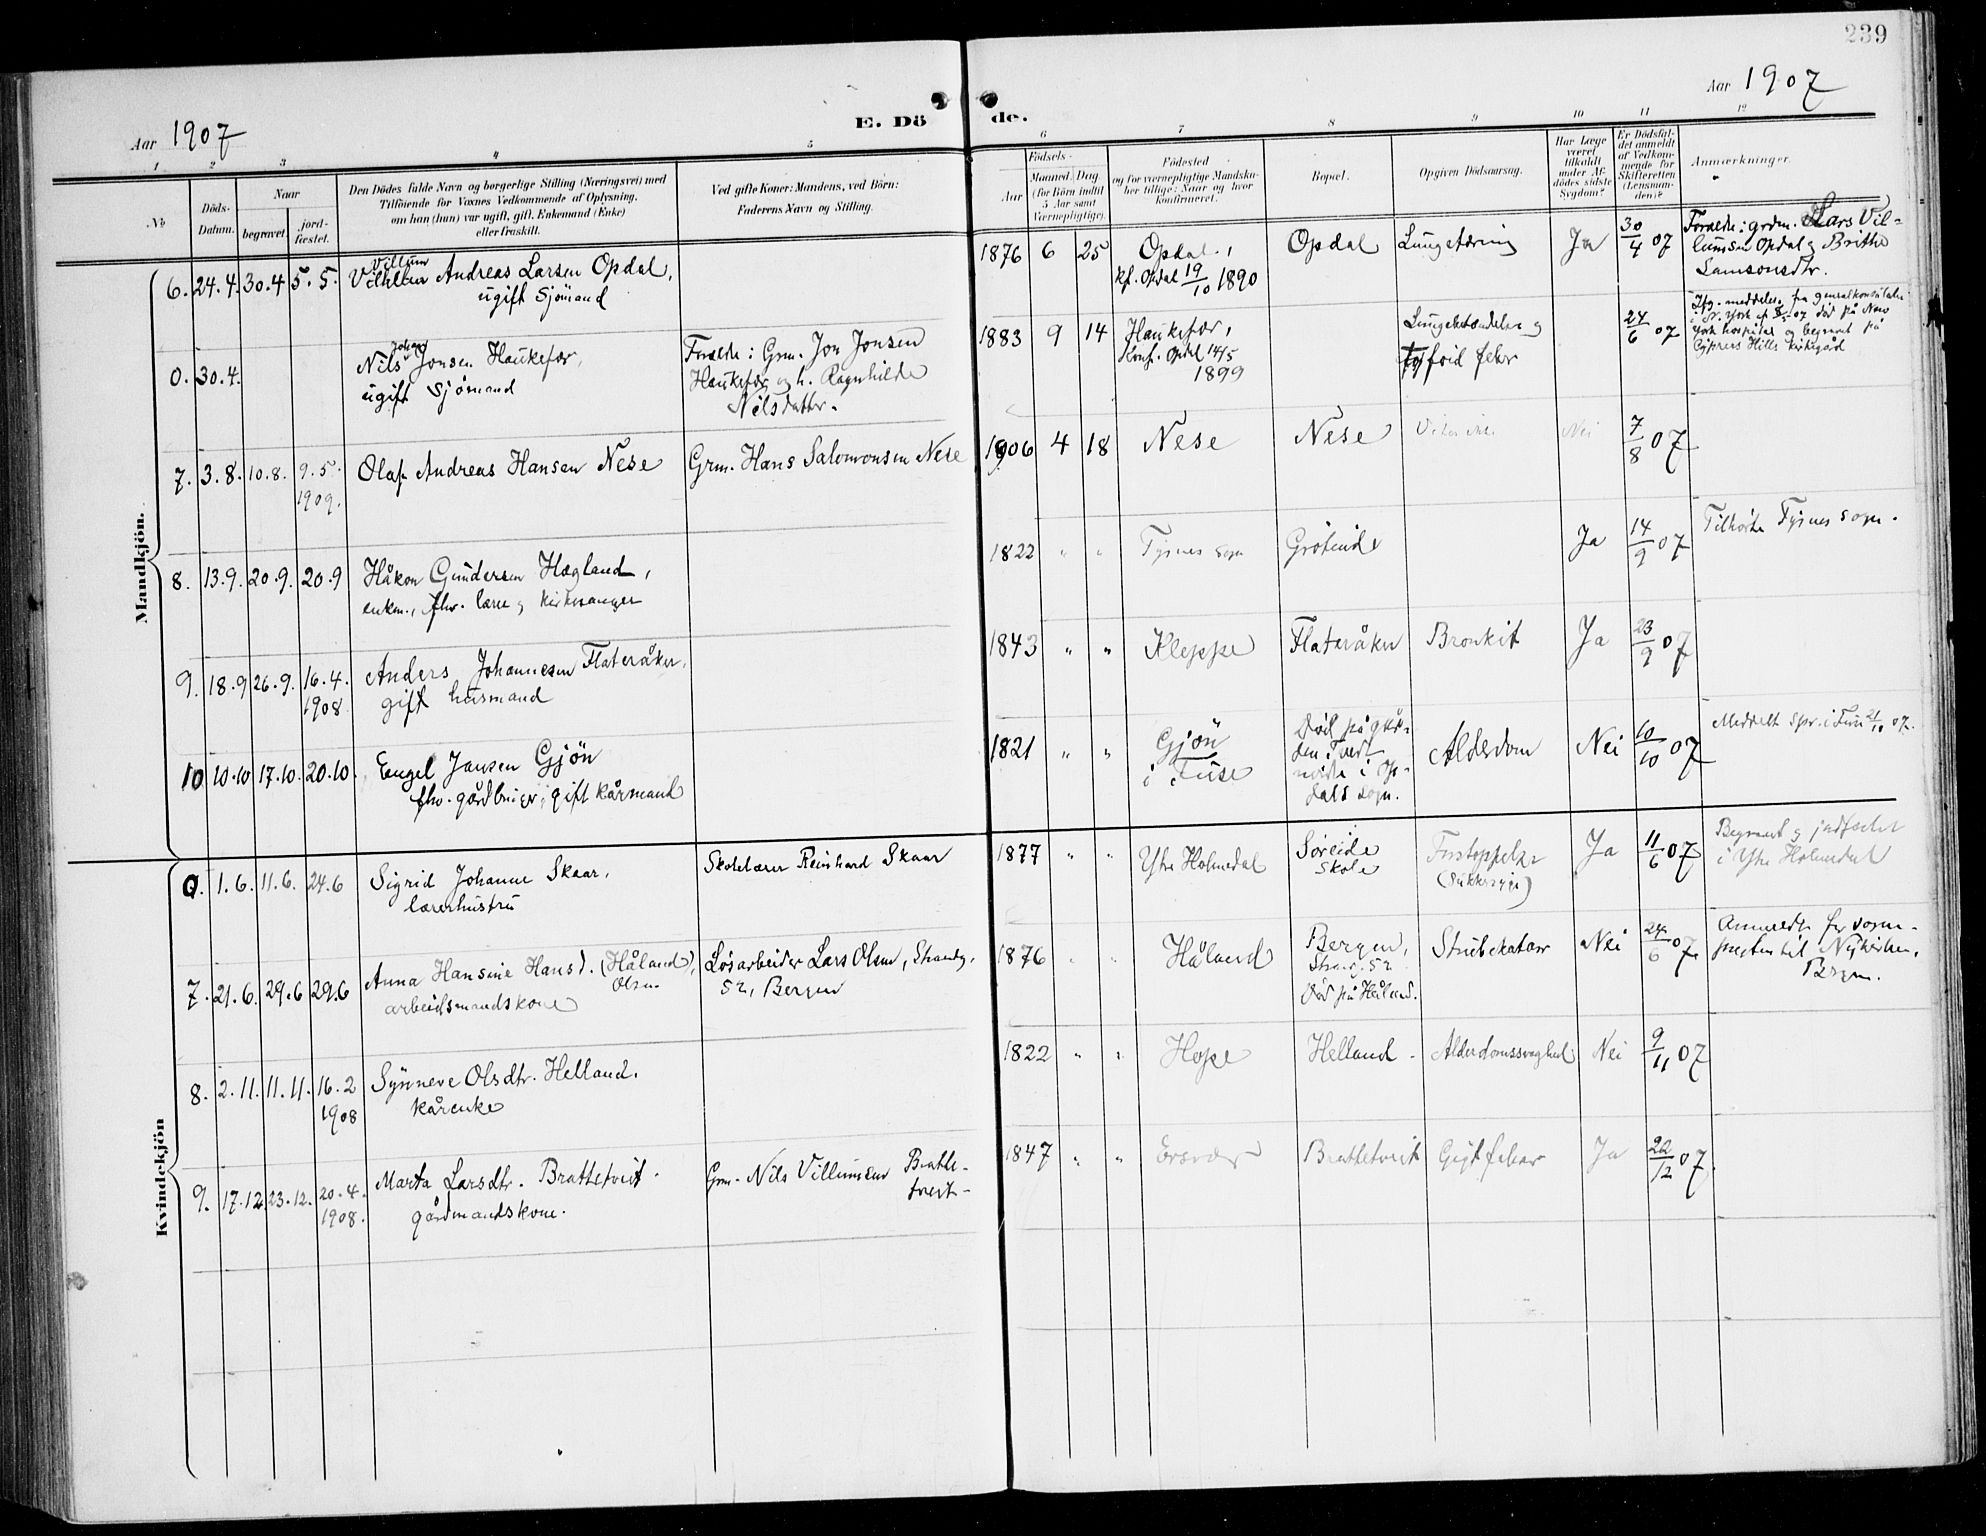 239
Aar 1907
E. Dö de.
Aar 1907
1 2 3 4 5 6 7 8 9 10 11 12
No
Döds-
Datum.
Naar
begravet.
jord-
fæstet.
Den Dödes fulde Navn og borgerlige Stilling (Næringsvei) med
Tilföiende for Voxnes Vedkommende af Oplysning,
om han (hun) var ugift, gift, Enkemand (Enke)
eller fraskilt.
Ved gifte Koner: Mandens, ved Börn:
Faderens Navn og Stilling.
Födsels-
Aar
Maaned. Dag
(for Börn indtil
5 Aar samt
Værnepligtige).
Födested
og for værnepligtige Mandska-
ber tillige: Naar og hvor
konfirmeret.
Bopæl.
Opgiven Dödsaarsag.
Har Læge
været
tilkaldt
under Af-
dödes sidste
Sygdom?
Er Dödsfal-
det anmeldt
af Vedkom-
mende for
Skifteretten
(Lensman-
den)?
Anmærkninger.
Mandkjön.
6. 24.4. 30.4 5.5.
Villum
Andreas Larsen Opdal,
ugift Sjömand
1876 6 25
Opdal,
kf. Opdal 19/10 1890
Opdal
Lungetæring
Ja
30/4 07
Forælde: grdm. Lars Vil-
lumsen Opdal og Brithe
Samsonsdtr.
0. 30.4.
Johan
Nils Jonsen Haukefær,
ugift Sjömand
Forælde: Grm. Jon Jonsen
Haukefær og h. Ragnhilde
Nilsdatter.
1883 9 14
Haukefær,
Konf. Opdal 14/5
1899
Lungebetændelse og
tyfoid feber
24/6 07
Ifg. meddelse fra generalkonsulatet
i N. York af 8/5 07 död på New
York hospital og begravet på
Cypress Hills kirkegård
7. 3.8. 10.8. 9.5.
1909.
Olaf Andreas Hansen Nese
Grm. Hans Salomonsen Nese
1906 4 18
Nese
Nese
Nei
7/8 07
8. 13.9. 20.9. 20.9
Håkon Gundersen Hægland,
enkem., fhv. lærer og kirkesanger
1822 " "
Tysnes sogn
Ja
14/9 07
Tilhörte Tysnes sogn.
9. 18.9 26.9. 16.4.
1908
Anders Johannesen Flateråker,
gift husmand
1843 " "
Kleppe
Flateråker
Bronkit
Ja
23/9 07
10 10.10 17.10. 20.10.
Engel Jansen Gjön
fhv. gårdbruger, gift kårmand
1821 " "
Gjön
i Fuse
Död på går-
den Tvedt-
i Op-
dals sogn.
Alderdom
Nei
10/10 07
Meddelt spr. i Fuse 21/10 07.
Kvindekjön
0. 1.6. 11.6. 24.6
Sigrid Johanne Skaar,
lærerhustru
Skolelærer Reinhard Skaar
1877 " "
Ytre Holmedal
Söreide
Skole
Ja
11/6 07
Begravet og jordfæstet
i Ytre Holmedal
7. 21.6. 29.6 29.6
Anna Hansine Hansd. (Håland),
Olsen
arbeidsmandskone
Lösarbeider Lars Olsen, Strandg.
52, Bergen
1876 " "
Håland
Bergen,
Strandg. 52
död på Håland.
Strubekatarr
Nei
24/6 07
Anmeldt for sogne-
presten til Nykirken,
Bergen.
8. 2.11. 11.11. 16.2
1908
Synneve Olsdtr. Helland.
kårenke
1822 " "
Hope
Helland
Alderdomssvaghed
Nei
9/11 07
9. 17.12 23.12. 20.4.
1908.
Marta Larsdtr. Brattetveit.
gårdmandskone.
Grm. Nils Villumsen Bratte-
tveit
1847 " "
Ersvær
Brattetveit
Gigtfeber
Ja
22/12 07.